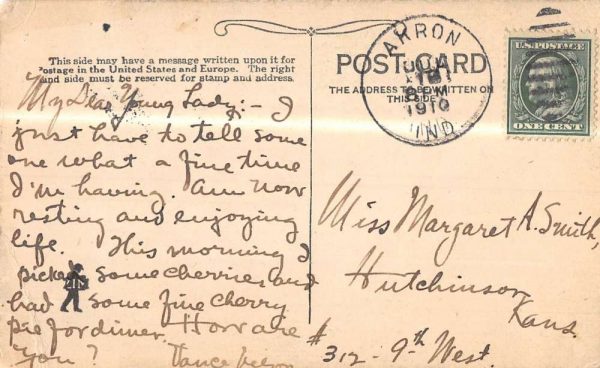 This side may have a message written upon it for
postage in the United States and Europe. The right
and side must be reserved for stamp and address.
My Dear Young Lady:- I
just have to tell some
one what a fine time
I'm having. Am now
resting and enjoying
life. This morning I
picked some cherries, and
had some fine cherry
pie for dinner. How are
you?
POST CARD
THE ADDRESS TO BE WRITTEN ON
THIS SIDE
AKRON
1910
IND
U.S. POSTAGE
ONE CENT
Miss Margaret A. Smith,
Hutchinson,
Kans.
# 312 - 9th West.